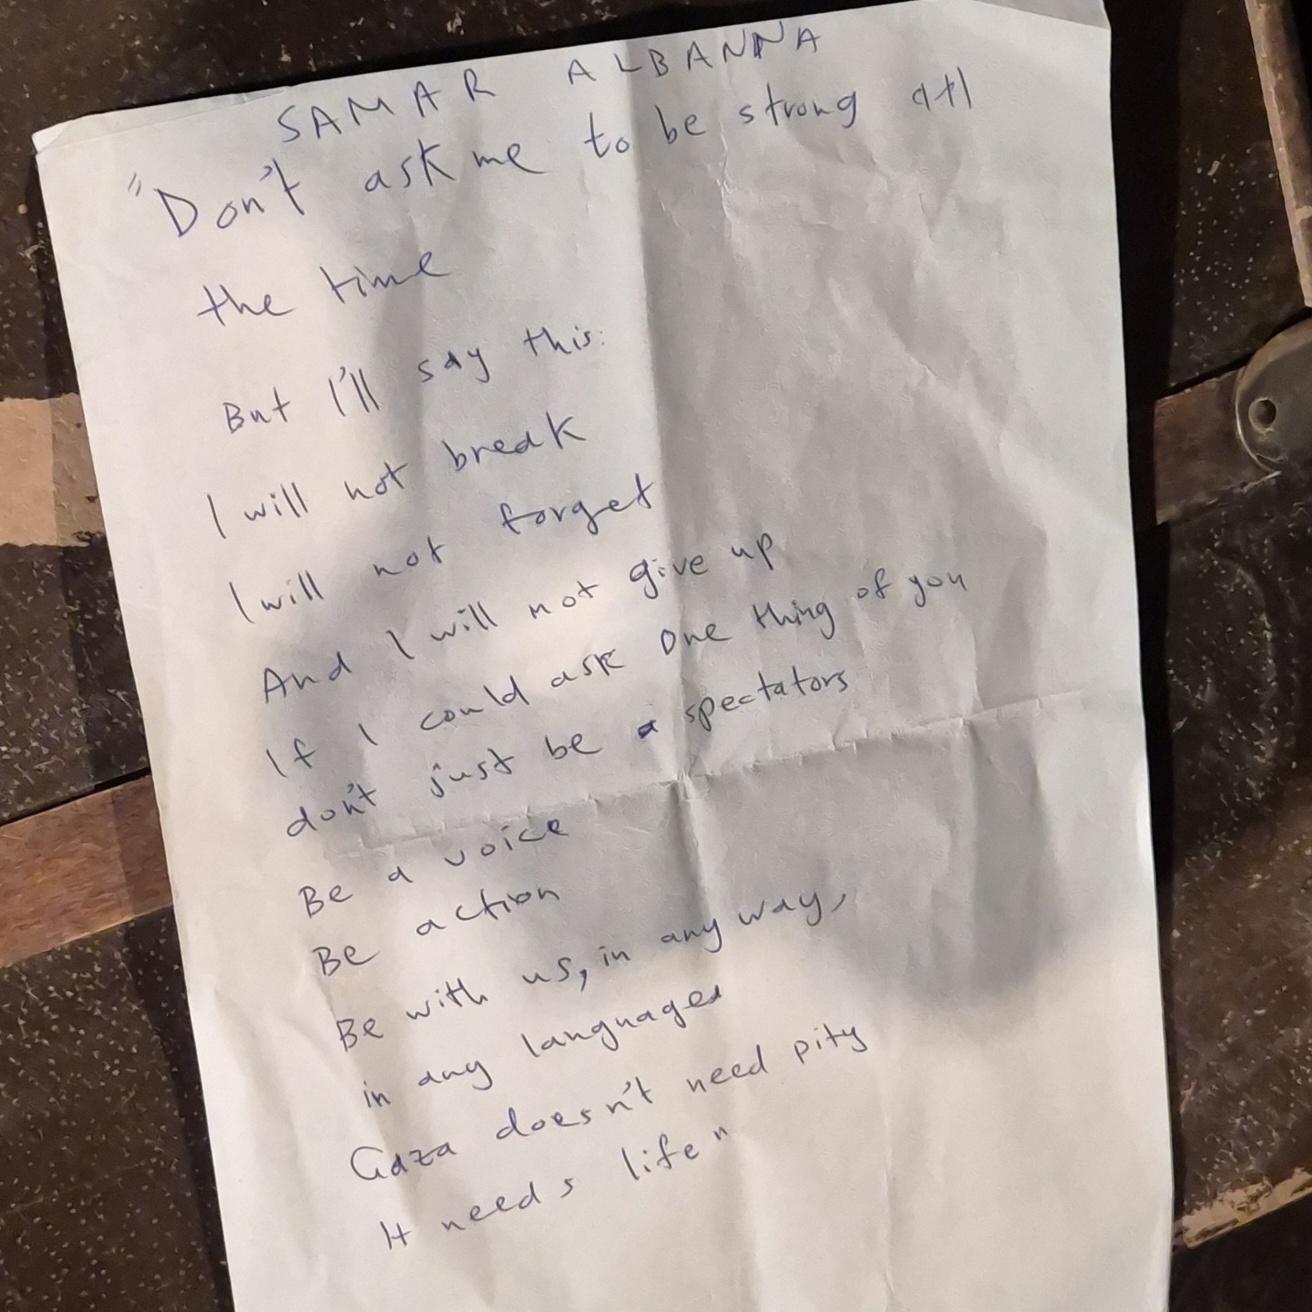 SAMAR ALBANNA
"Don't ask me to be strong all
the time
But I'll say this:
I will not break
I will not forget
And I will not give up
If I could ask one thing of you
don't just be a spectators
Be a voice
Be action
Be with us, in any way,
in any languages
Gaza doesn't need pity
It needs life"